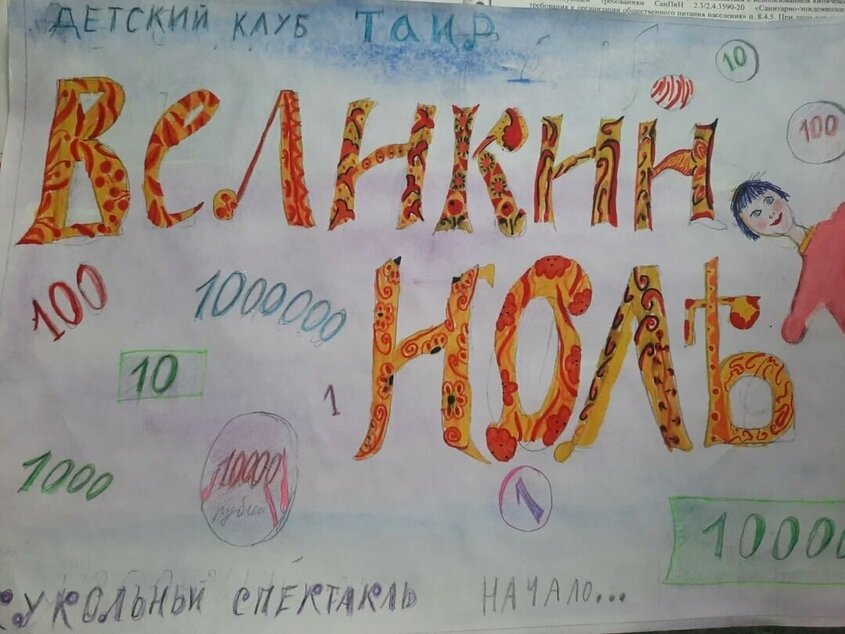 требованиям СанПиН 2.3/2.4.3590-20 «Санитарно-эпидемиолог
требования к организации общественного питания населения» п. 8.4.5. При этом
ДЕТСКИЙ КЛУБ ТАИР
10
ВЕЛИКИЙ
100
НОЛѢ
100
1000000
10
1
1000
10000
рублей
1
10000
КУКОЛЬНЫЙ СПЕКТАКЛЬ НАЧАЛО...